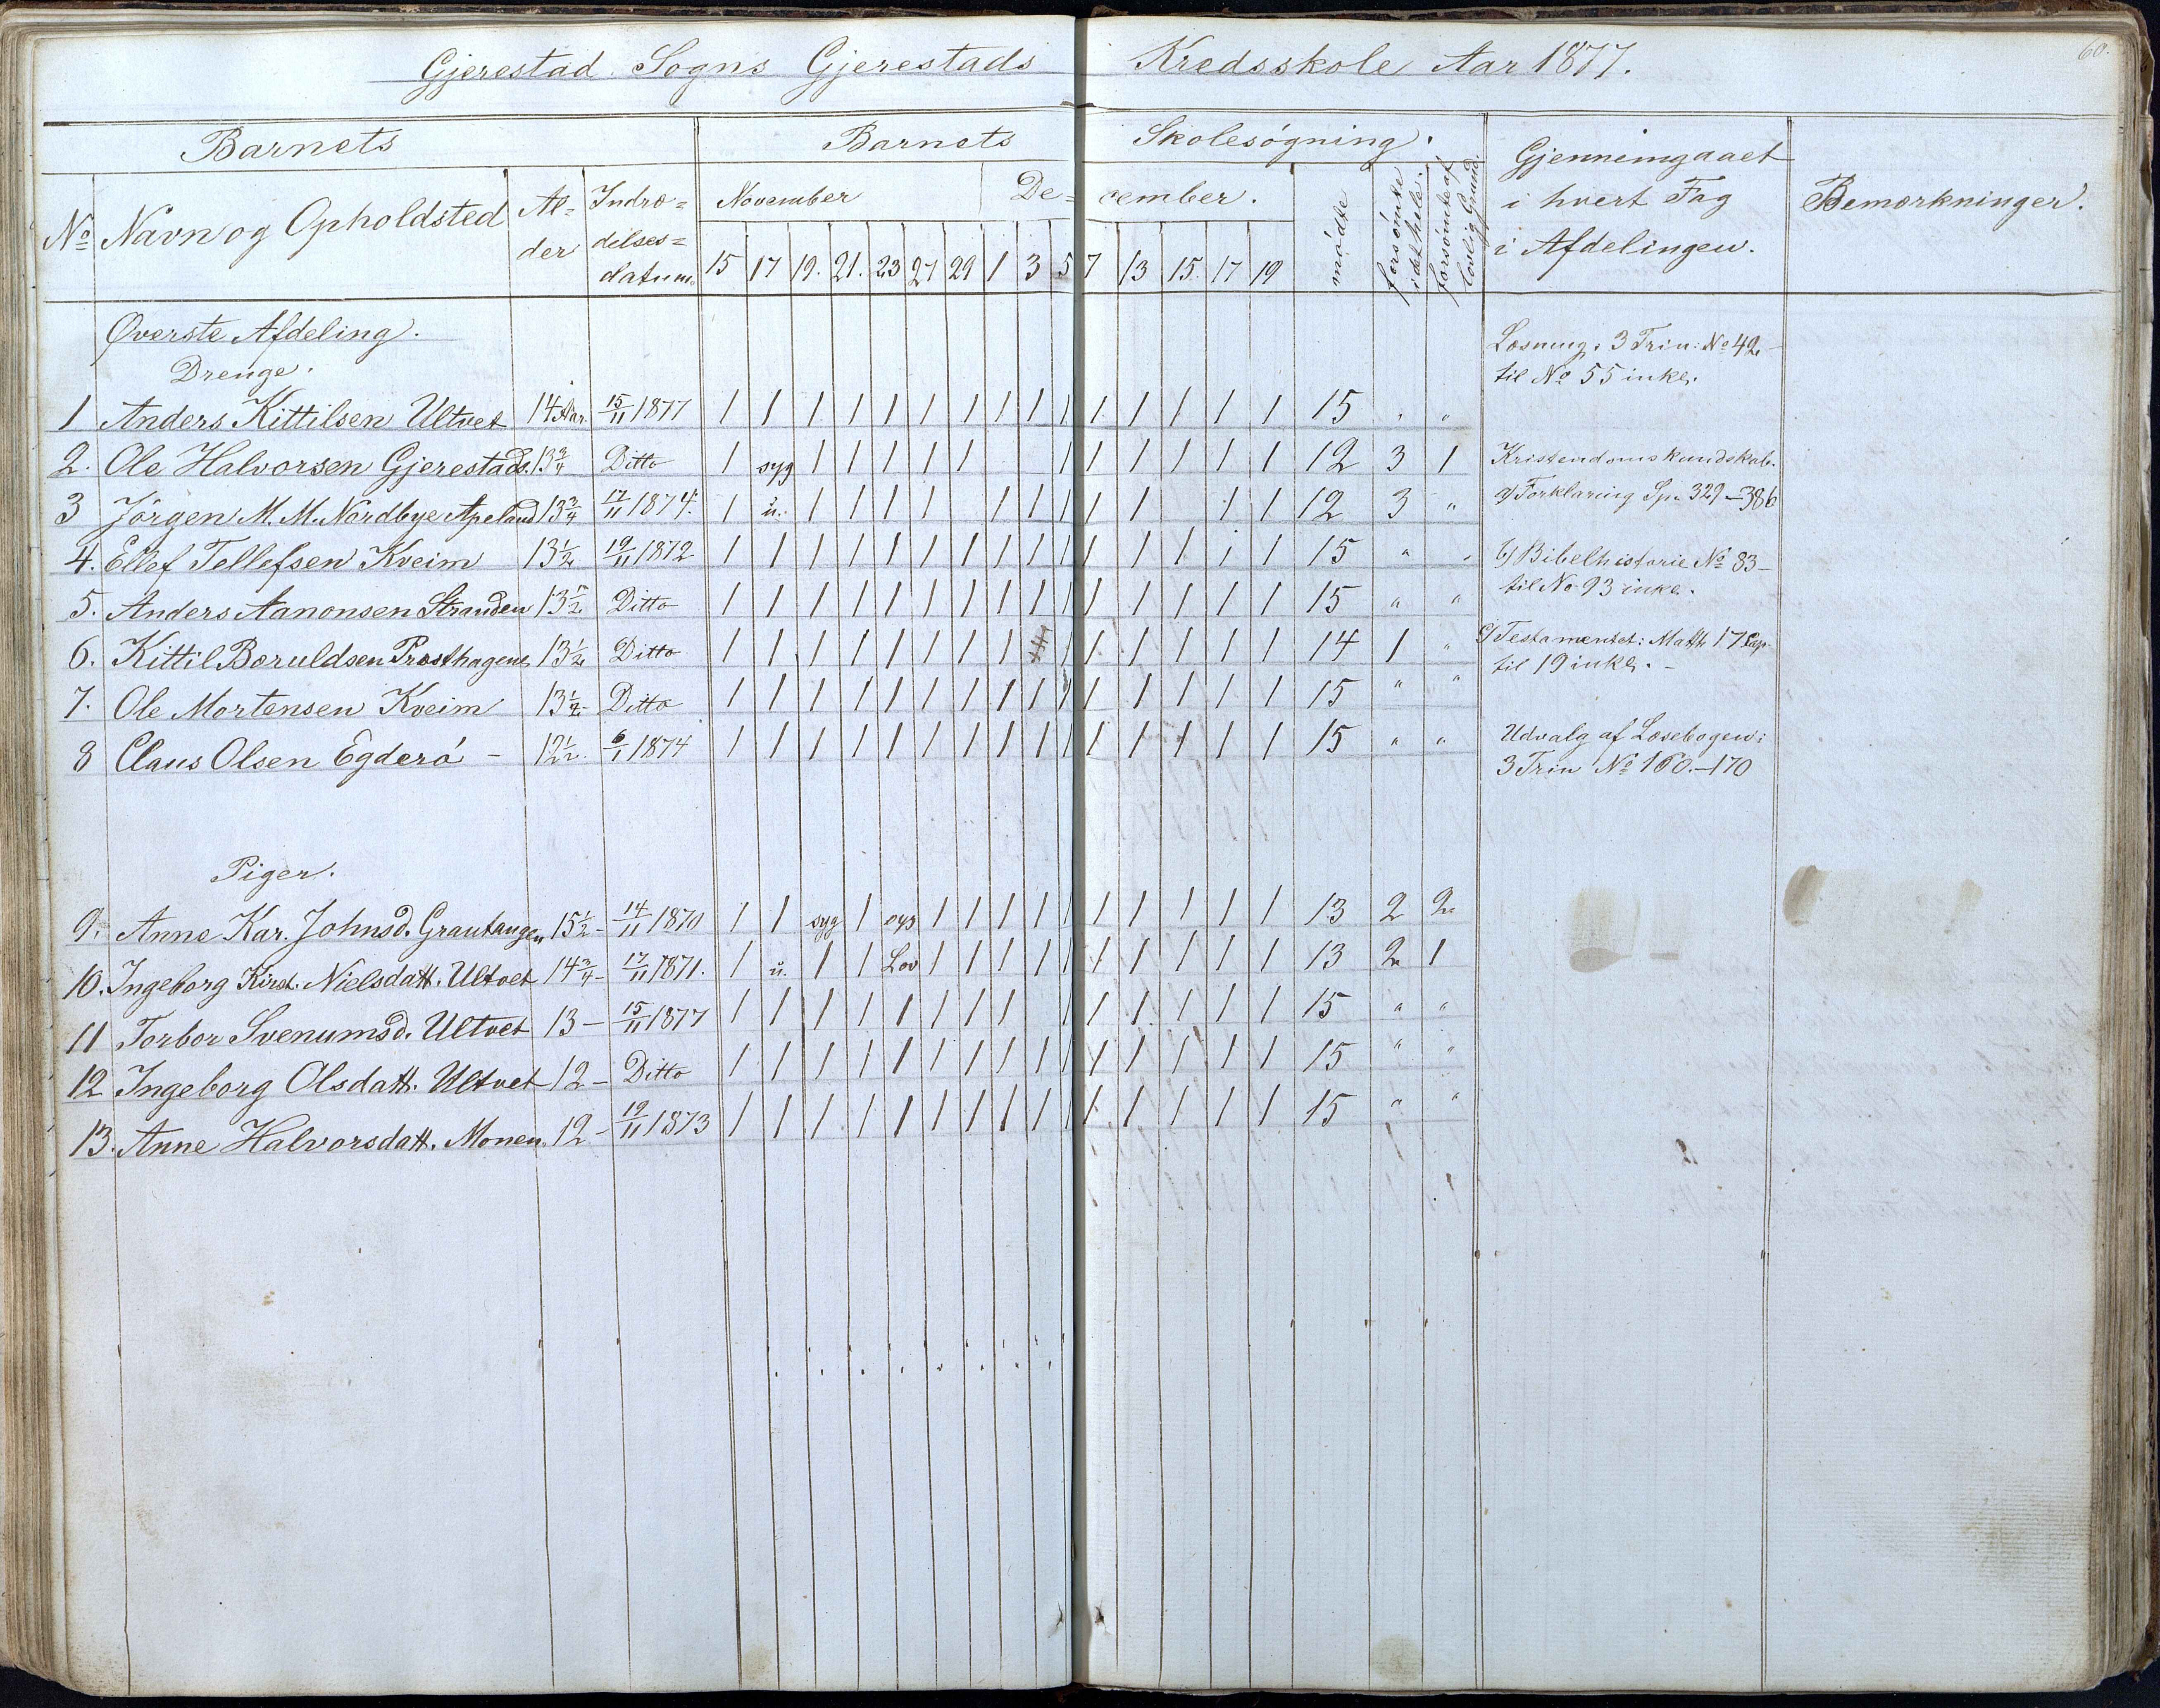 60.
Gjerestad Sogns Gjerestads Kredsskole Aar 1877.
Barnets Barnets Skolesøgning. Gjennemgaaet i hvert Fag i Afdelingen. Bemærkninger.
No Navn og Opholdsted Al=der Indtræ=delses=datum. November De=cember. mødte forsømte i det hele. forsømte af lovlig Grund.
15 17 19. 21. 23 27 29 1 3 5 7 13 15. 17 19
Øverste Afdeling.
Drenge.
1 Anders Kittilsen Ultvet 14 Aar. 15/11 1877 1 1 1 1 1 1 1 1 1 1 1 1 1 1 1 15 " "
2. Ole Halvorsen Gjerestads. 13 3/4 Ditto 1 syg 1 1 1 1 1 1 1 1 1 1 1 12 3 1
3 Jørgen M. M. Nordbye Apeland 13 3/4 17/11 1874. 1 u. 1 1 1 1 1 1 1 1 1 1 1 1 12 3 "
4. Ellef Tellefsen Kveim 13 1/2 19/11 1872 1 1 1 1 1 1 1 1 1 1 1 1 1 1 1 15 " "
5. Anders Aanonsen Stranden 13 1/2 Ditto 1 1 1 1 1 1 1 1 1 1 1 1 1 1 1 15 " "
6. Kittil Boruldsen Præsthagen 13 1/2 Ditto 1 1 1 1 1 1 1 1 1 1 1 1 1 1 14 1 "
7. Ole Mortensen Kveim 13 1/2 Ditto 1 1 1 1 1 1 1 1 1 1 1 1 1 1 1 15 " "
8 Claus Olsen Egderø - 12 1/2. 6/1 1874 1 1 1 1 1 1 1 1 1 1 1 1 1 1 1 15 " "
Piger.
9. Anne Kar. Johnsd. Grautangen 15 1/2 - 14/11 1870 1 1 syg 1 syg 1 1 1 1 1 1 1 1 1 1 13 2 2
10. Ingeborg Kirst. Nielsdatt. Ultvet 14 3/4 - 17/11 1871. 1 u. 1 1 Lov 1 1 1 1 1 1 1 1 1 1 13 2 1
11 Torbor Svenumsd. Ultvet 13 - 15/11 1877 1 1 1 1 1 1 1 1 1 1 1 1 1 1 15 " "
12 Ingeborg Olsdatt. Ultvet 12 - Ditto 1 1 1 1 1 1 1 1 1 1 1 1 1 1 1 15 " "
13. Anne Halvorsdatt. Monen. 12 - 19/11 1873 1 1 1 1 1 1 1 1 1 1 1 1 1 1 1 15 " "
Læsning: 3 Trin: No 42 -
til No 55 inkl.
Kristendomskundskab.
a) Forklaring Sp. 329 - 386
b) Bibelhistorie No 83 -
til No 93 inkl.
c) Testamentet: Matth 17 Cap
til 19 inkl. -
Udvalg af Læsebogen:
3 Trin No 160. - 170